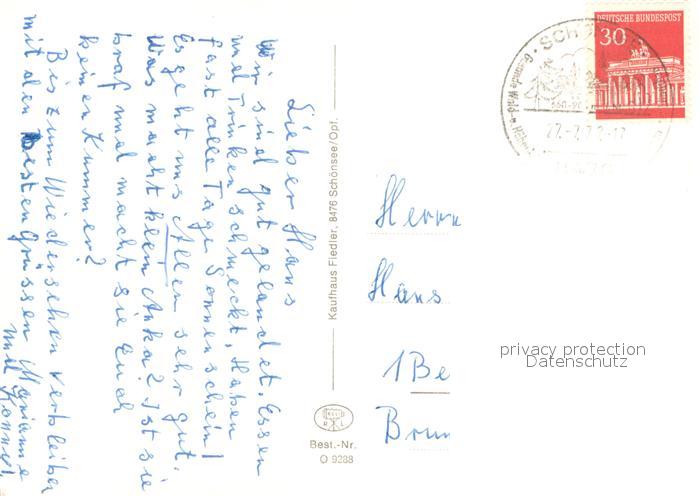 Lieber Hans
Wir sind gut gelandet. Essen
und Trinken schmeckt, Haben
fast alle Tage Sonnenschein!
Es geht uns Allen sehr gut.
Was macht klein Anka? Ist sie
braf und macht sie Euch
keinen Kummer?
Bis zum Wiedersehen verbleiben
mit den besten Grüssen Marianne
und
Kaufhaus Fiedler, 8476 Schönsee/Opf.
Best.-Nr.
O 9288
DEUTSCHE BUNDESPOST
30
Herrn
Hans
1 Be
Brun
privacy protection
Datenschutz